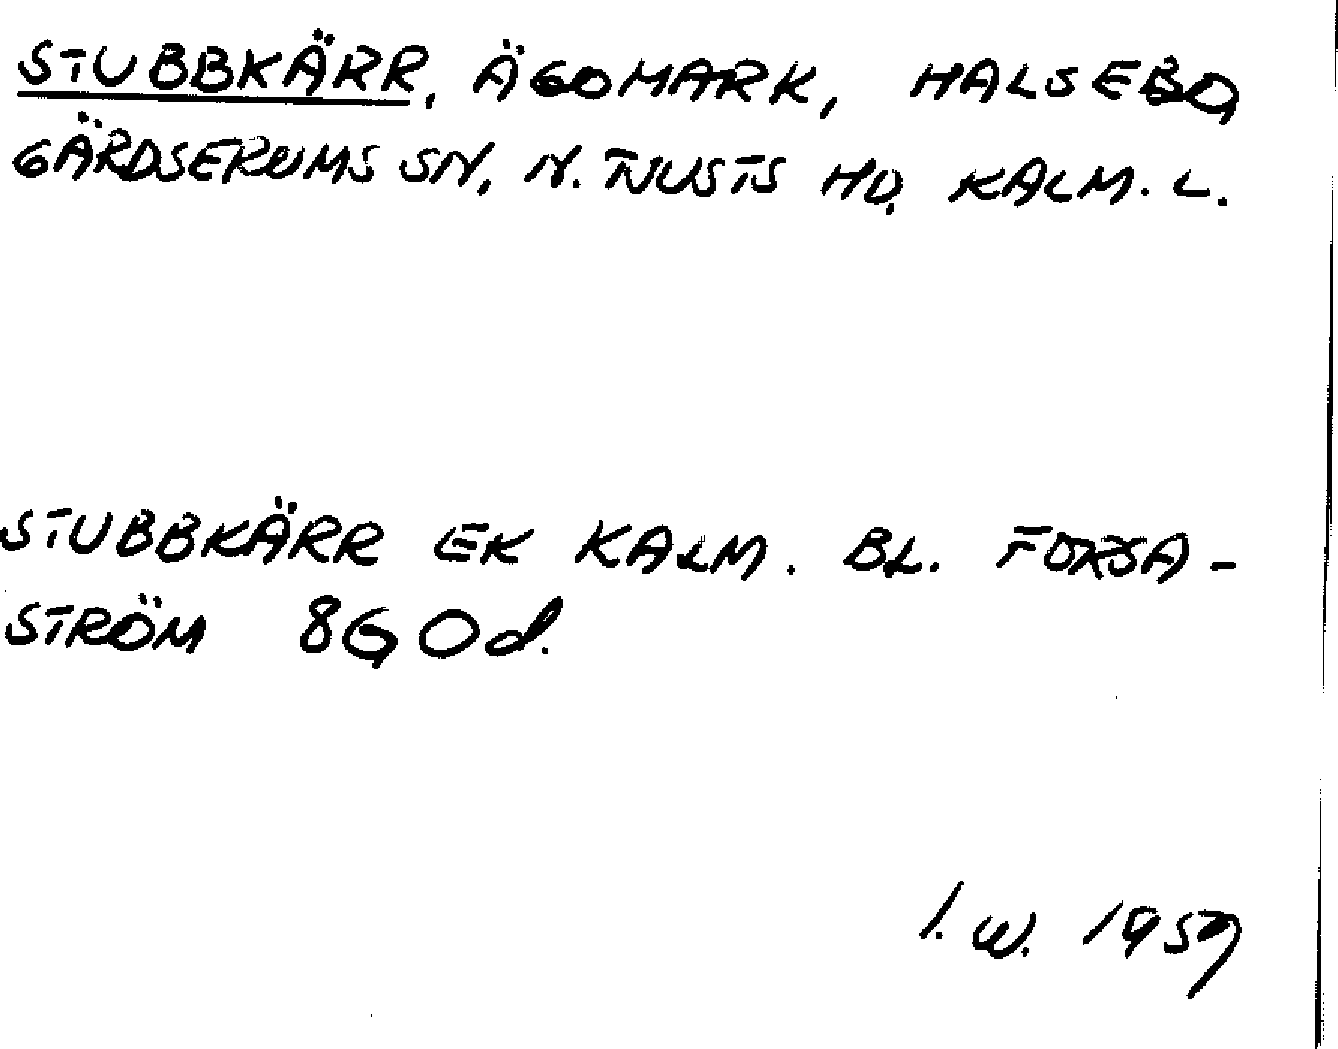 STUBBKÄRR, ÄGOMARK, HALSEBO,
GÄRDSERUMS SN, N. TJUSTS HD, KALM. L.
STUBBKÄRR EK KALM. BL. FORSA-
STRÖM 8G0d.
I. W. 1959